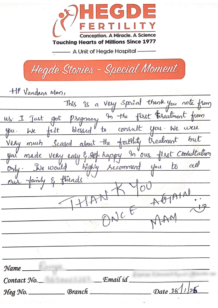 HEGDE
FERTILITY
Conception. A Miracle. A Science
Touching Hearts of Millions Since 1977
A Unit of Hegde Hospital
Hegde Stories - Special Moment
Hi Vandana Mam,
This is a very special thank you note from
us I Just got Pregnancy in the first treatment from
you. We felt blessed to consult you. We were
very much scared about the fertility treatment but
you made very easy & happy in our first Consultation
only. We would highly recommend you to all
our family & friends
THANK YOU
ONCE AGAIN
MAM
Name
Contact No. Email id
Heg No. Branch Date